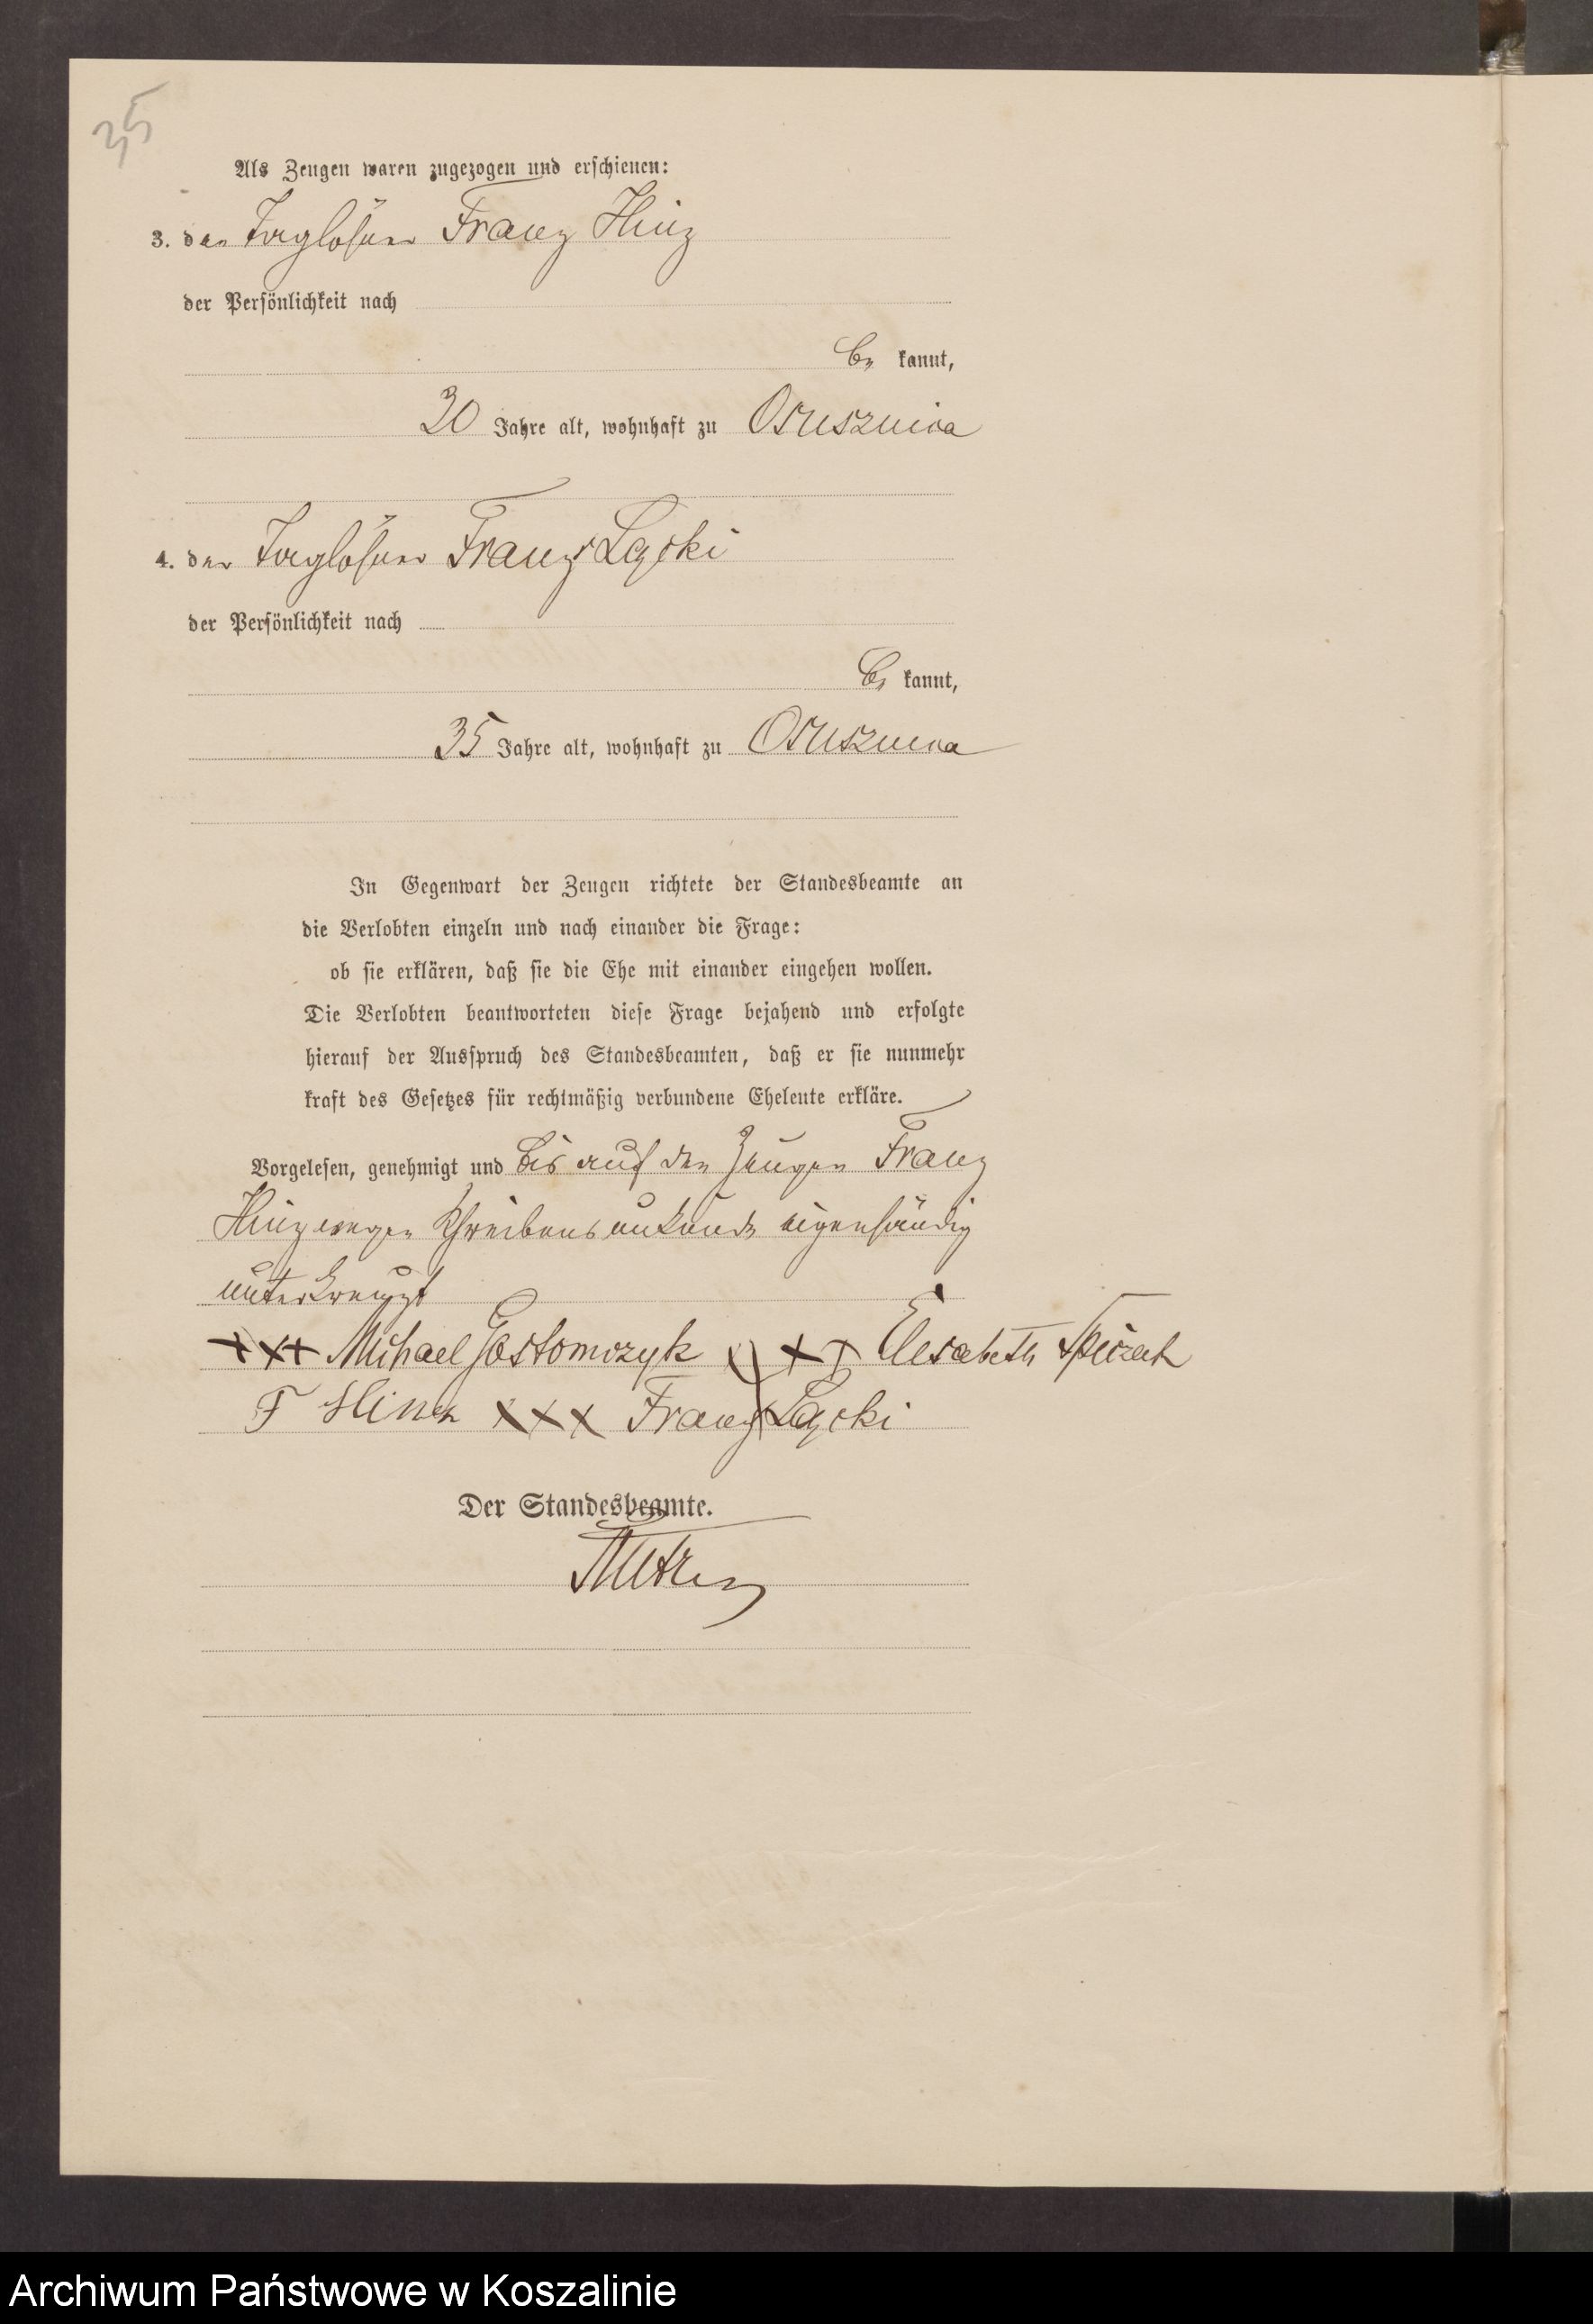 35
Als Zeugen waren zugezogen und erschienen:
3. der Taglöhner Franz Hinz
der Persönlichkeit nach
be kannt,
30 Jahre alt, wohnhaft zu Osusznica
4. der Taglöhner Franz Lącki
der Persönlichkeit nach
be kannt,
35 Jahre alt, wohnhaft zu Osusznica
In Gegenwart der Zeugen richtete der Standesbeamte an
die Verlobten einzeln und nach einander die Frage:
ob sie erklären, daß sie die Ehe mit einander eingehen wollen.
Die Verlobten beantworteten diese Frage bejahend und erfolgte
hierauf der Ausspruch des Standesbeamten, daß er sie nunmehr
kraft des Gesetzes für rechtmäßig verbundene Eheleute erkläre.
Vorgelesen, genehmigt und bis auf den Zeugen Franz
Hinz wegen Schreibensunkunde eigenhändig
unterkreuzt
+++ Michael Gostomczyk +++ Elisabeth
F Hinz +++ Franz Lącki
Der Standesbeamte.